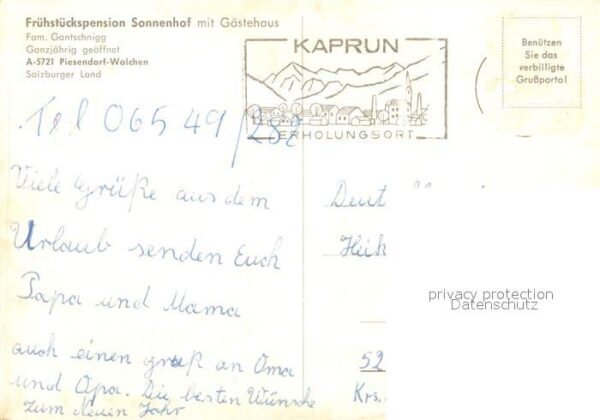 Frühstückspension Sonnenhof mit Gästehaus
Fam. Gantschnigg
Ganzjährig geöffnet
A-5721 Piesendorf-Walchen
Salzburger Land
KAPRUN
ERHOLUNGSORT
Benützen
Sie das
verbilligte
Grußporto!
Tel 06549/282
Viele Grüße aus dem
Urlaub senden Euch
Papa und Mama
auch einen gruß an Oma
und Opa. Die besten Wünsche
zum neuen Jahr
Deut
52
Krs.
privacy protection
Datenschutz